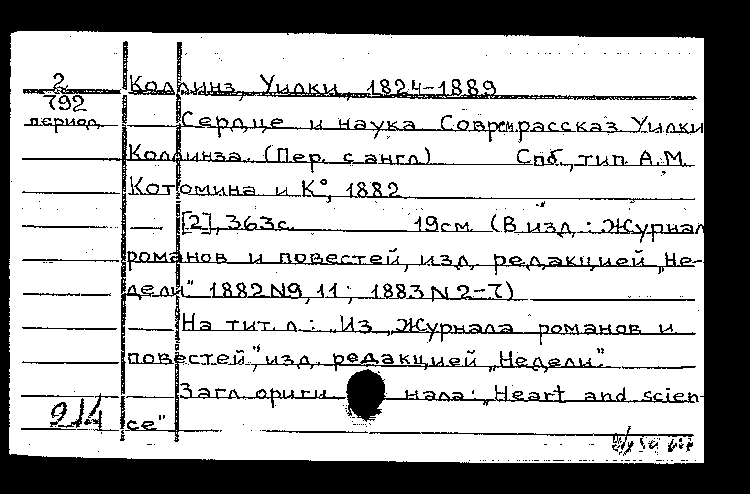 2
792
период.
Коллинз, Уилки, 1824-1889
Сердце и наука Соврем.рассказ Уилки
Коллинза. (Пер. с англ.) Спб., тип. А.М.
Котомина и К°, 1882
[2], 363с. 19см. (В изд.: Журнал
романов и повестей, изд. редакцией „Не-
дели" 1882 N9, 11; 1883 N 2-7)
На тит. л.: „Из „Журнала романов и
повестей," изд. редакцией „Недели".
Загл. ориги нала: „Heart and scien-
се"
914